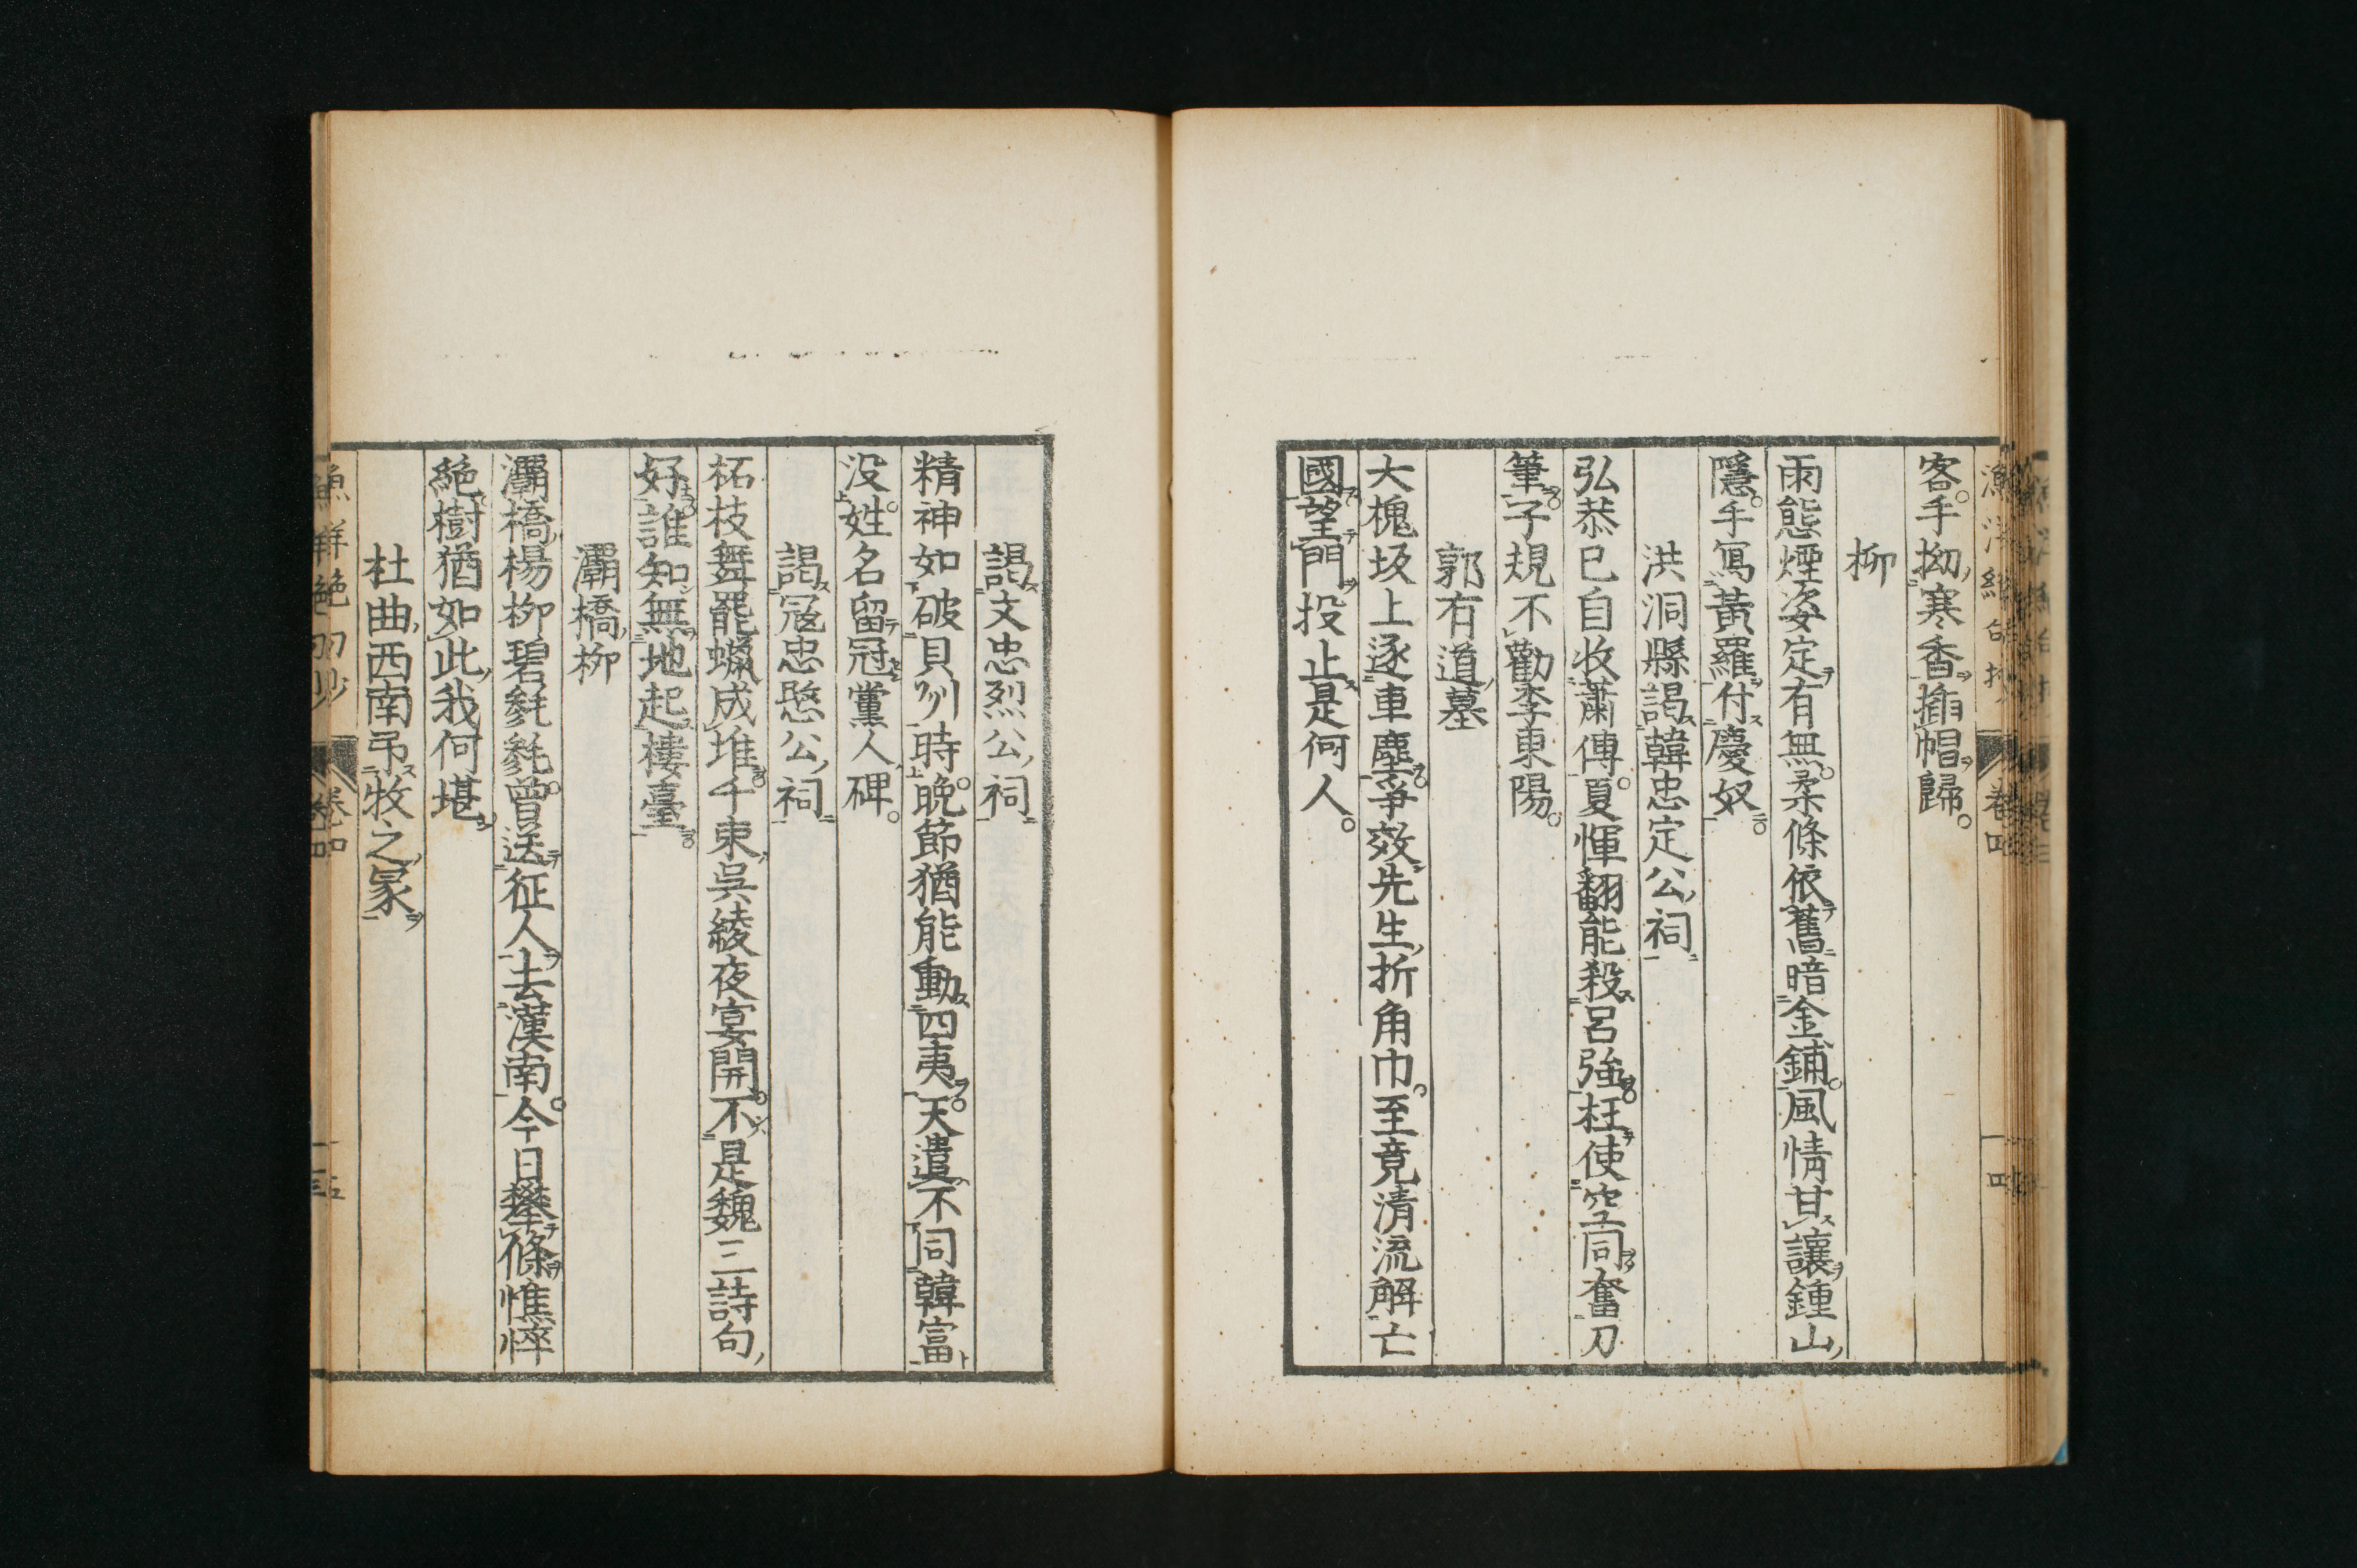 客手拗寒香揷帽歸
柳
雨態煙姿定有無柔條依舊暗金鋪風情甘讓鍾山
隱手寫黃羅付慶奴
洪洞縣謁韓忠定公祠
弘恭已自收蕭傳夏惲翻能殺呂強枉使空同奮刀
筆子規不勸李東陽
郭有道墓
大槐坂上逐車塵爭效先生折角巾至竟清流解亡
國望門投止是何人
謁文忠烈公祠
精神如破貝州時晚節猶能動四夷天遣不同韓富
没姓名留冠黨人碑
謁寇忠愍公祠
柘枝舞罷蠟成堆千束吳綾夜宴開不是魏三詩句
好誰知無地起樓臺
灞橋柳
灞橋楊柳碧毿毿曾送征人去漢南今日攀條憔悴
絶樹猶如此我何堪
杜曲西南弔牧之冢